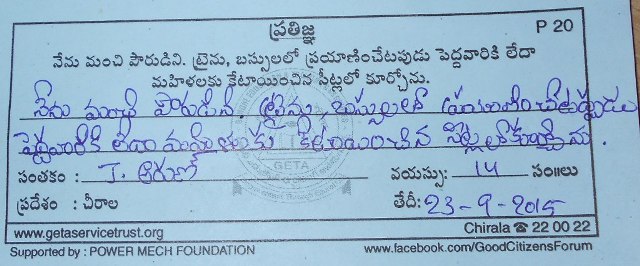 ప్రతిజ్ఞ P 20
నేను మంచి పౌరుడిని. ట్రైను, బస్సులలో ప్రయాణించేటపుడు పెద్దవారికి లేదా
మహిళలకు కేటాయించిన సీట్లలో కూర్చోను.
నేను మంచి పౌరుడిని. ట్రైను, బస్సులలో ప్రయాణించేటప్పుడు
పెద్దవారికి లేదా మహిళలకు కేటాయించిన సీట్లలో కూర్చోను.
GETA
సంతకం : J. అరుణ్ వయస్సు: 14 సం॥లు
ప్రదేశం : చీరాల తేదీ: 23-9-2015
www.getaservicetrust.org Chirala ☎ 22 00 22
Supported by : POWER MECH FOUNDATION www.facebook.com/GoodCitizensForum